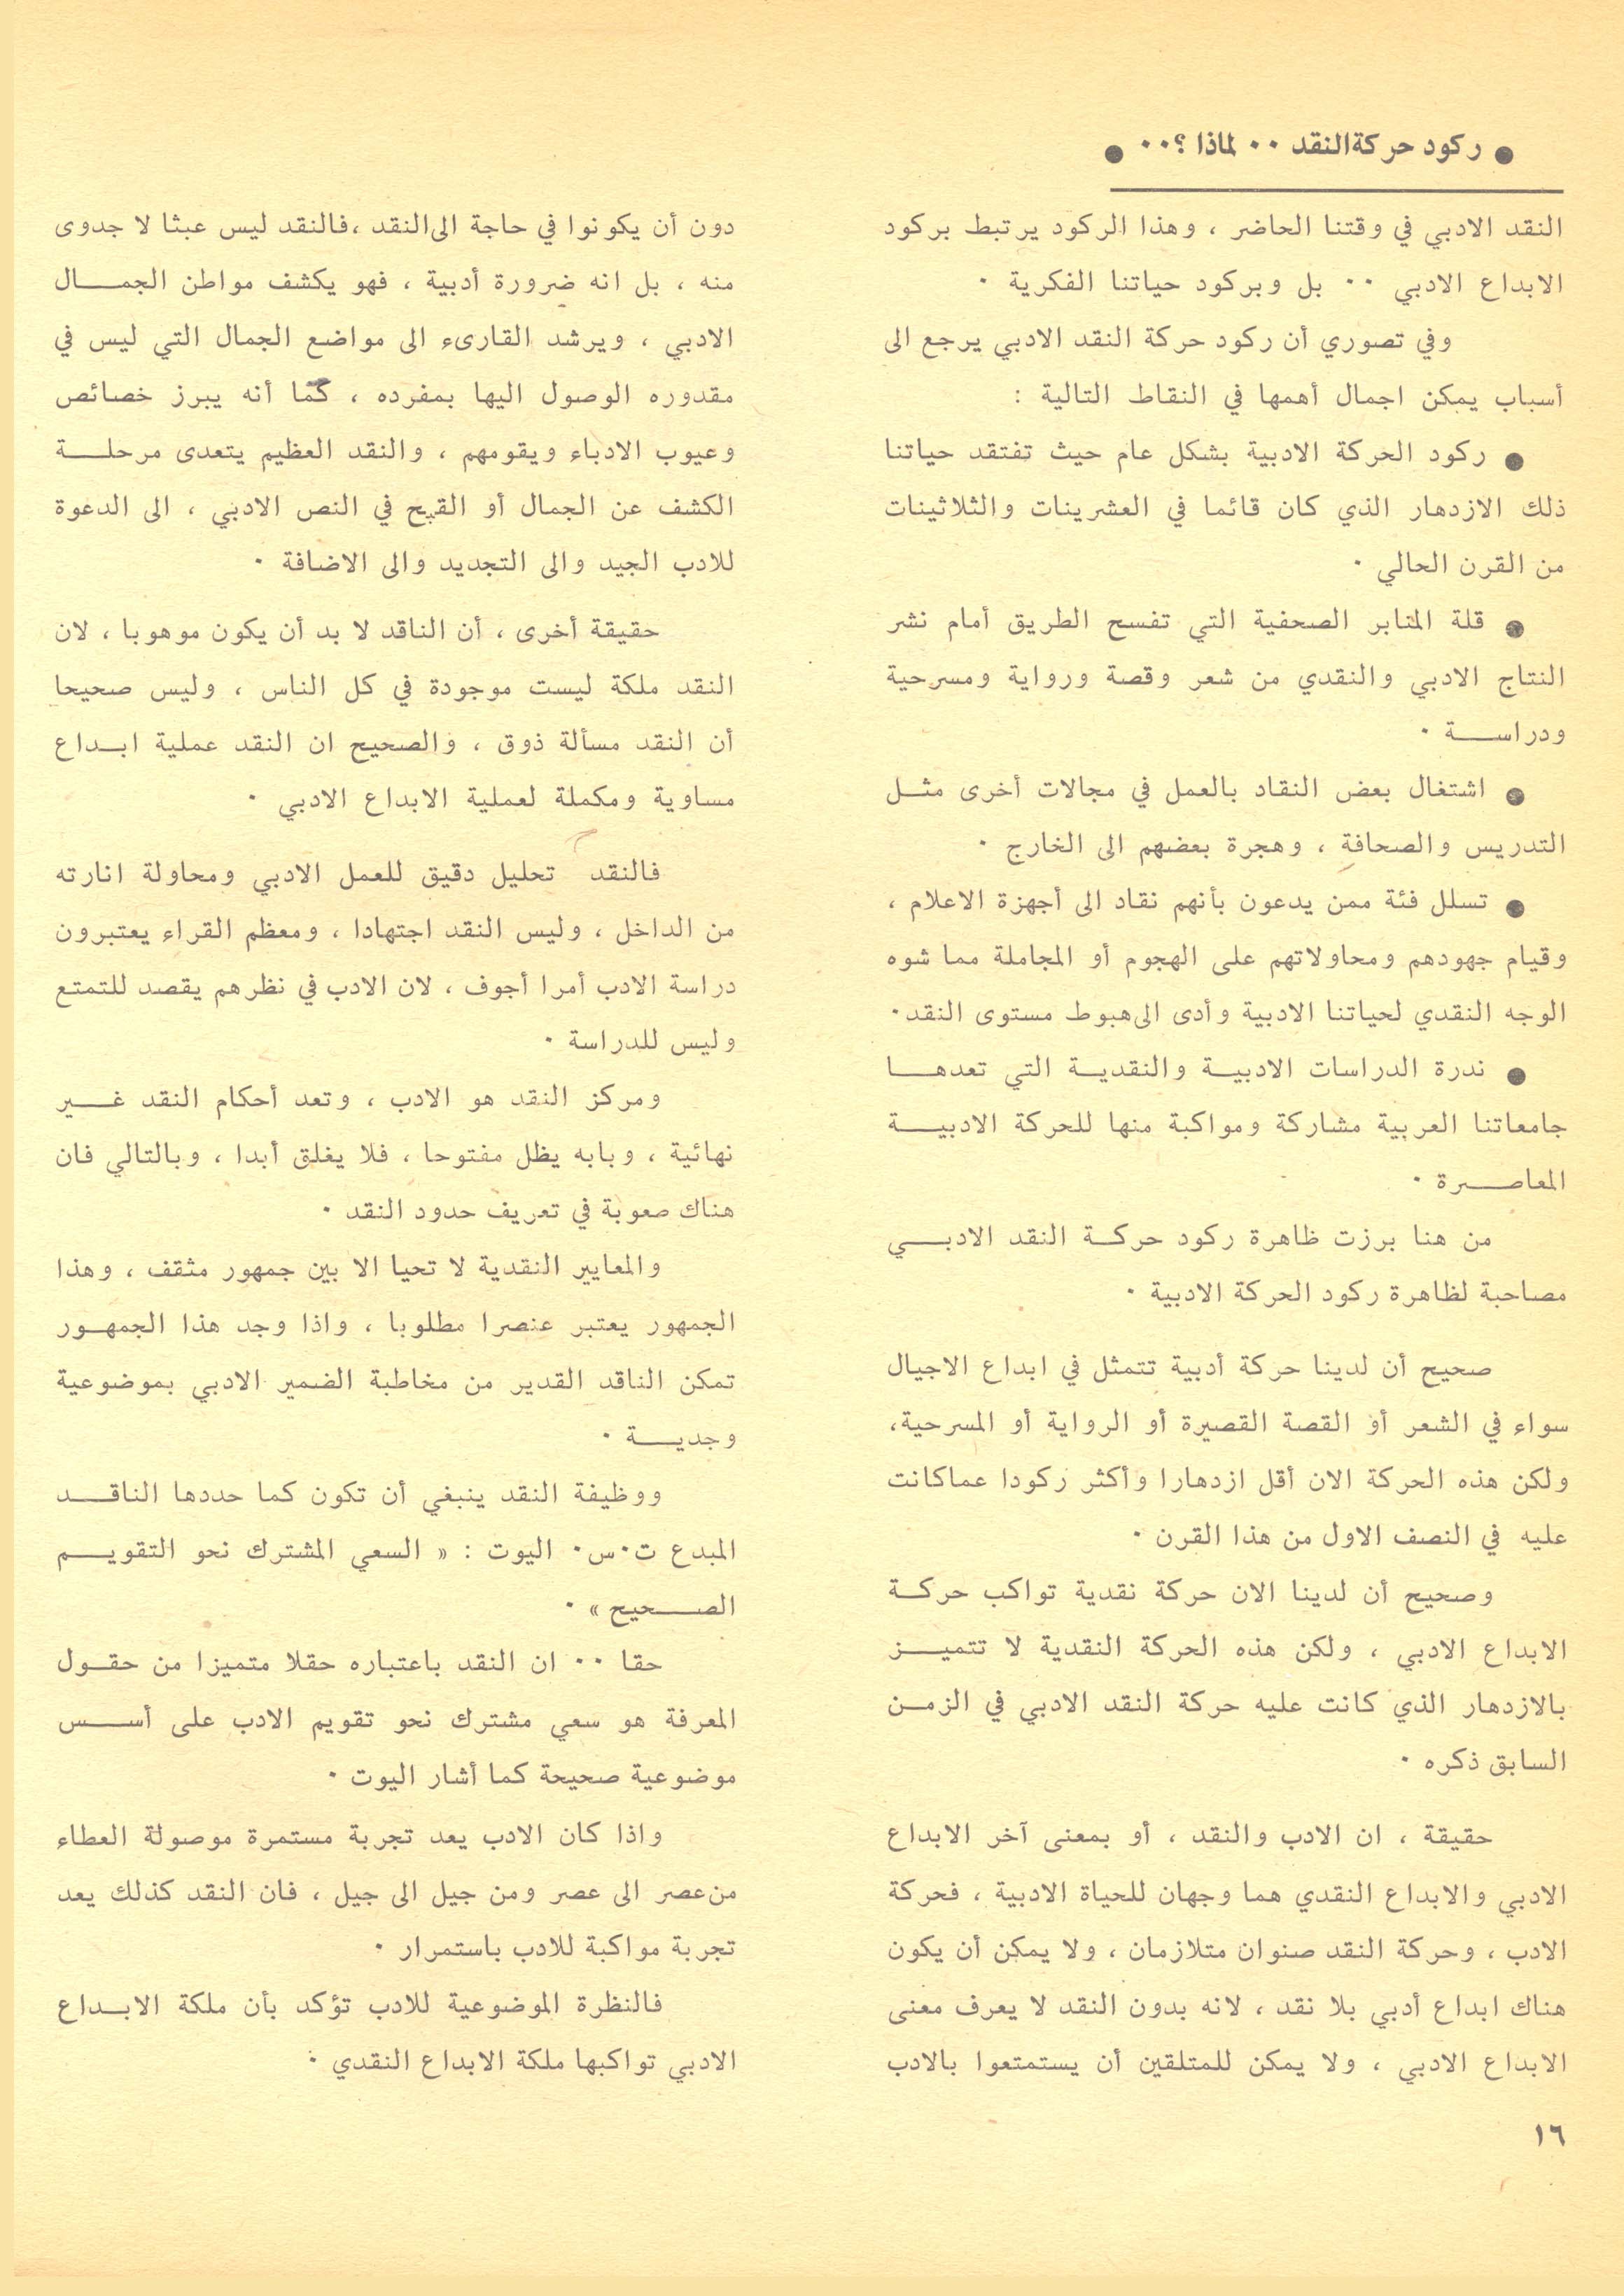 ● ركود حركة النقد ٠٠ لماذا ؟ ٠٠ ●
النقد الادبي في وقتنا الحاضر ، وهذا الركود يرتبط بركود
الابداع الادبي ٠٠ بل وبركود حياتنا الفكرية ٠
وفي تصوري أن ركود حركة النقد الادبي يرجع الى
أسباب يمكن اجمال أهمها في النقاط التالية :
● ركود الحركة الادبية بشكل عام حيث تفتقد حياتنا
ذلك الازدهار الذي كان قائما في العشرينات والثلاثينات
من القرن الحالي ٠
● قلة المنابر الصحفية التي تفسح الطريق أمام نشر
النتاج الادبي والنقدي من شعر وقصة ورواية ومسرحية
ودراسة ٠
● اشتغال بعض النقاد بالعمل في مجالات أخرى مثل
التدريس والصحافة ، وهجرة بعضهم الى الخارج ٠
● تسلل فئة ممن يدعون بأنهم نقاد الى أجهزة الاعلام ،
وقيام جهودهم ومحاولاتهم على الهجوم أو المجاملة مما شوه
الوجه النقدي لحياتنا الادبية وأدى الى هبوط مستوى النقد ٠
● ندرة الدراسات الادبية والنقدية التي تعدها
جامعاتنا العربية مشاركة ومواكبة منها للحركة الادبية
المعاصرة ٠
من هنا برزت ظاهرة ركود حركة النقد الادبي
مصاحبة لظاهرة ركود الحركة الادبية ٠
صحيح أن لدينا حركة أدبية تتمثل في ابداع الاجيال
سواء في الشعر أو القصة القصيرة أو الرواية أو المسرحية،
ولكن هذه الحركة الان أقل ازدهارا وأكثر ركودا عما كانت
عليه في النصف الاول من هذا القرن ٠
وصحيح أن لدينا الان حركة نقدية تواكب حركة
الابداع الادبي ، ولكن هذه الحركة النقدية لا تتميز
بالازدهار الذي كانت عليه حركة النقد الادبي في الزمن
السابق ذكره ٠
حقيقة ، ان الادب والنقد ، أو بمعنى آخر الابداع
الادبي والابداع النقدي هما وجهان للحياة الادبية ، فحركة
الادب ، وحركة النقد صنوان متلازمان ، ولا يمكن أن يكون
هناك ابداع أدبي بلا نقد ، لانه بدون النقد لا يعرف معنى
الابداع الادبي ، ولا يمكن للمتلقين أن يستمتعوا بالادب
دون أن يكونوا في حاجة الى النقد ،فالنقد ليس عبثا لا جدوى
منه ، بل انه ضرورة أدبية ، فهو يكشف مواطن الجمال
الادبي ، ويرشد القارىء الى مواضع الجمال التي ليس في
مقدوره الوصول اليها بمفرده ، كما أنه يبرز خصائص
وعيوب الادباء ويقومهم ، والنقد العظيم يتعدى مرحلة
الكشف عن الجمال أو القبح في النص الادبي ، الى الدعوة
للادب الجيد والى التجديد والى الاضافة ٠
حقيقة أخرى ، أن الناقد لا بد أن يكون موهوبا ، لان
النقد ملكة ليست موجودة في كل الناس ، وليس صحيحا
أن النقد مسألة ذوق ، والصحيح ان النقد عملية ابداع
مساوية ومكملة لعملية الابداع الادبي ٠
فالنقد تحليل دقيق للعمل الادبي ومحاولة انارته
من الداخل ، وليس النقد اجتهادا ، ومعظم القراء يعتبرون
دراسة الادب أمرا أجوف ، لان الادب في نظرهم يقصد للتمتع
وليس للدراسة ٠
ومركز النقد هو الادب ، وتعد أحكام النقد غير
نهائية ، وبابه يظل مفتوحا ، فلا يغلق أبدا ، وبالتالي فان
هناك صعوبة في تعريف حدود النقد ٠
والمعايير النقدية لا تحيا الا بين جمهور مثقف ، وهذا
الجمهور يعتبر عنصرا مطلوبا ، واذا وجد هذا الجمهور
تمكن الناقد القدير من مخاطبة الضمير الادبي بموضوعية
وجدية ٠
ووظيفة النقد ينبغي أن تكون كما حددها الناقد
المبدع ت٠س٠ اليوت : « السعي المشترك نحو التقويم
الصحيح » ٠
حقا ٠٠ ان النقد باعتباره حقلا متميزا من حقول
المعرفة هو سعي مشترك نحو تقويم الادب على أسس
موضوعية صحيحة كما أشار اليوت ٠
واذا كان الادب يعد تجربة مستمرة موصولة العطاء
من عصر الى عصر ومن جيل الى جيل ، فان النقد كذلك يعد
تجربة مواكبة للادب باستمرار ٠
فالنظرة الموضوعية للادب تؤكد بأن ملكة الابداع
الادبي تواكبها ملكة الابداع النقدي ٠
١٦